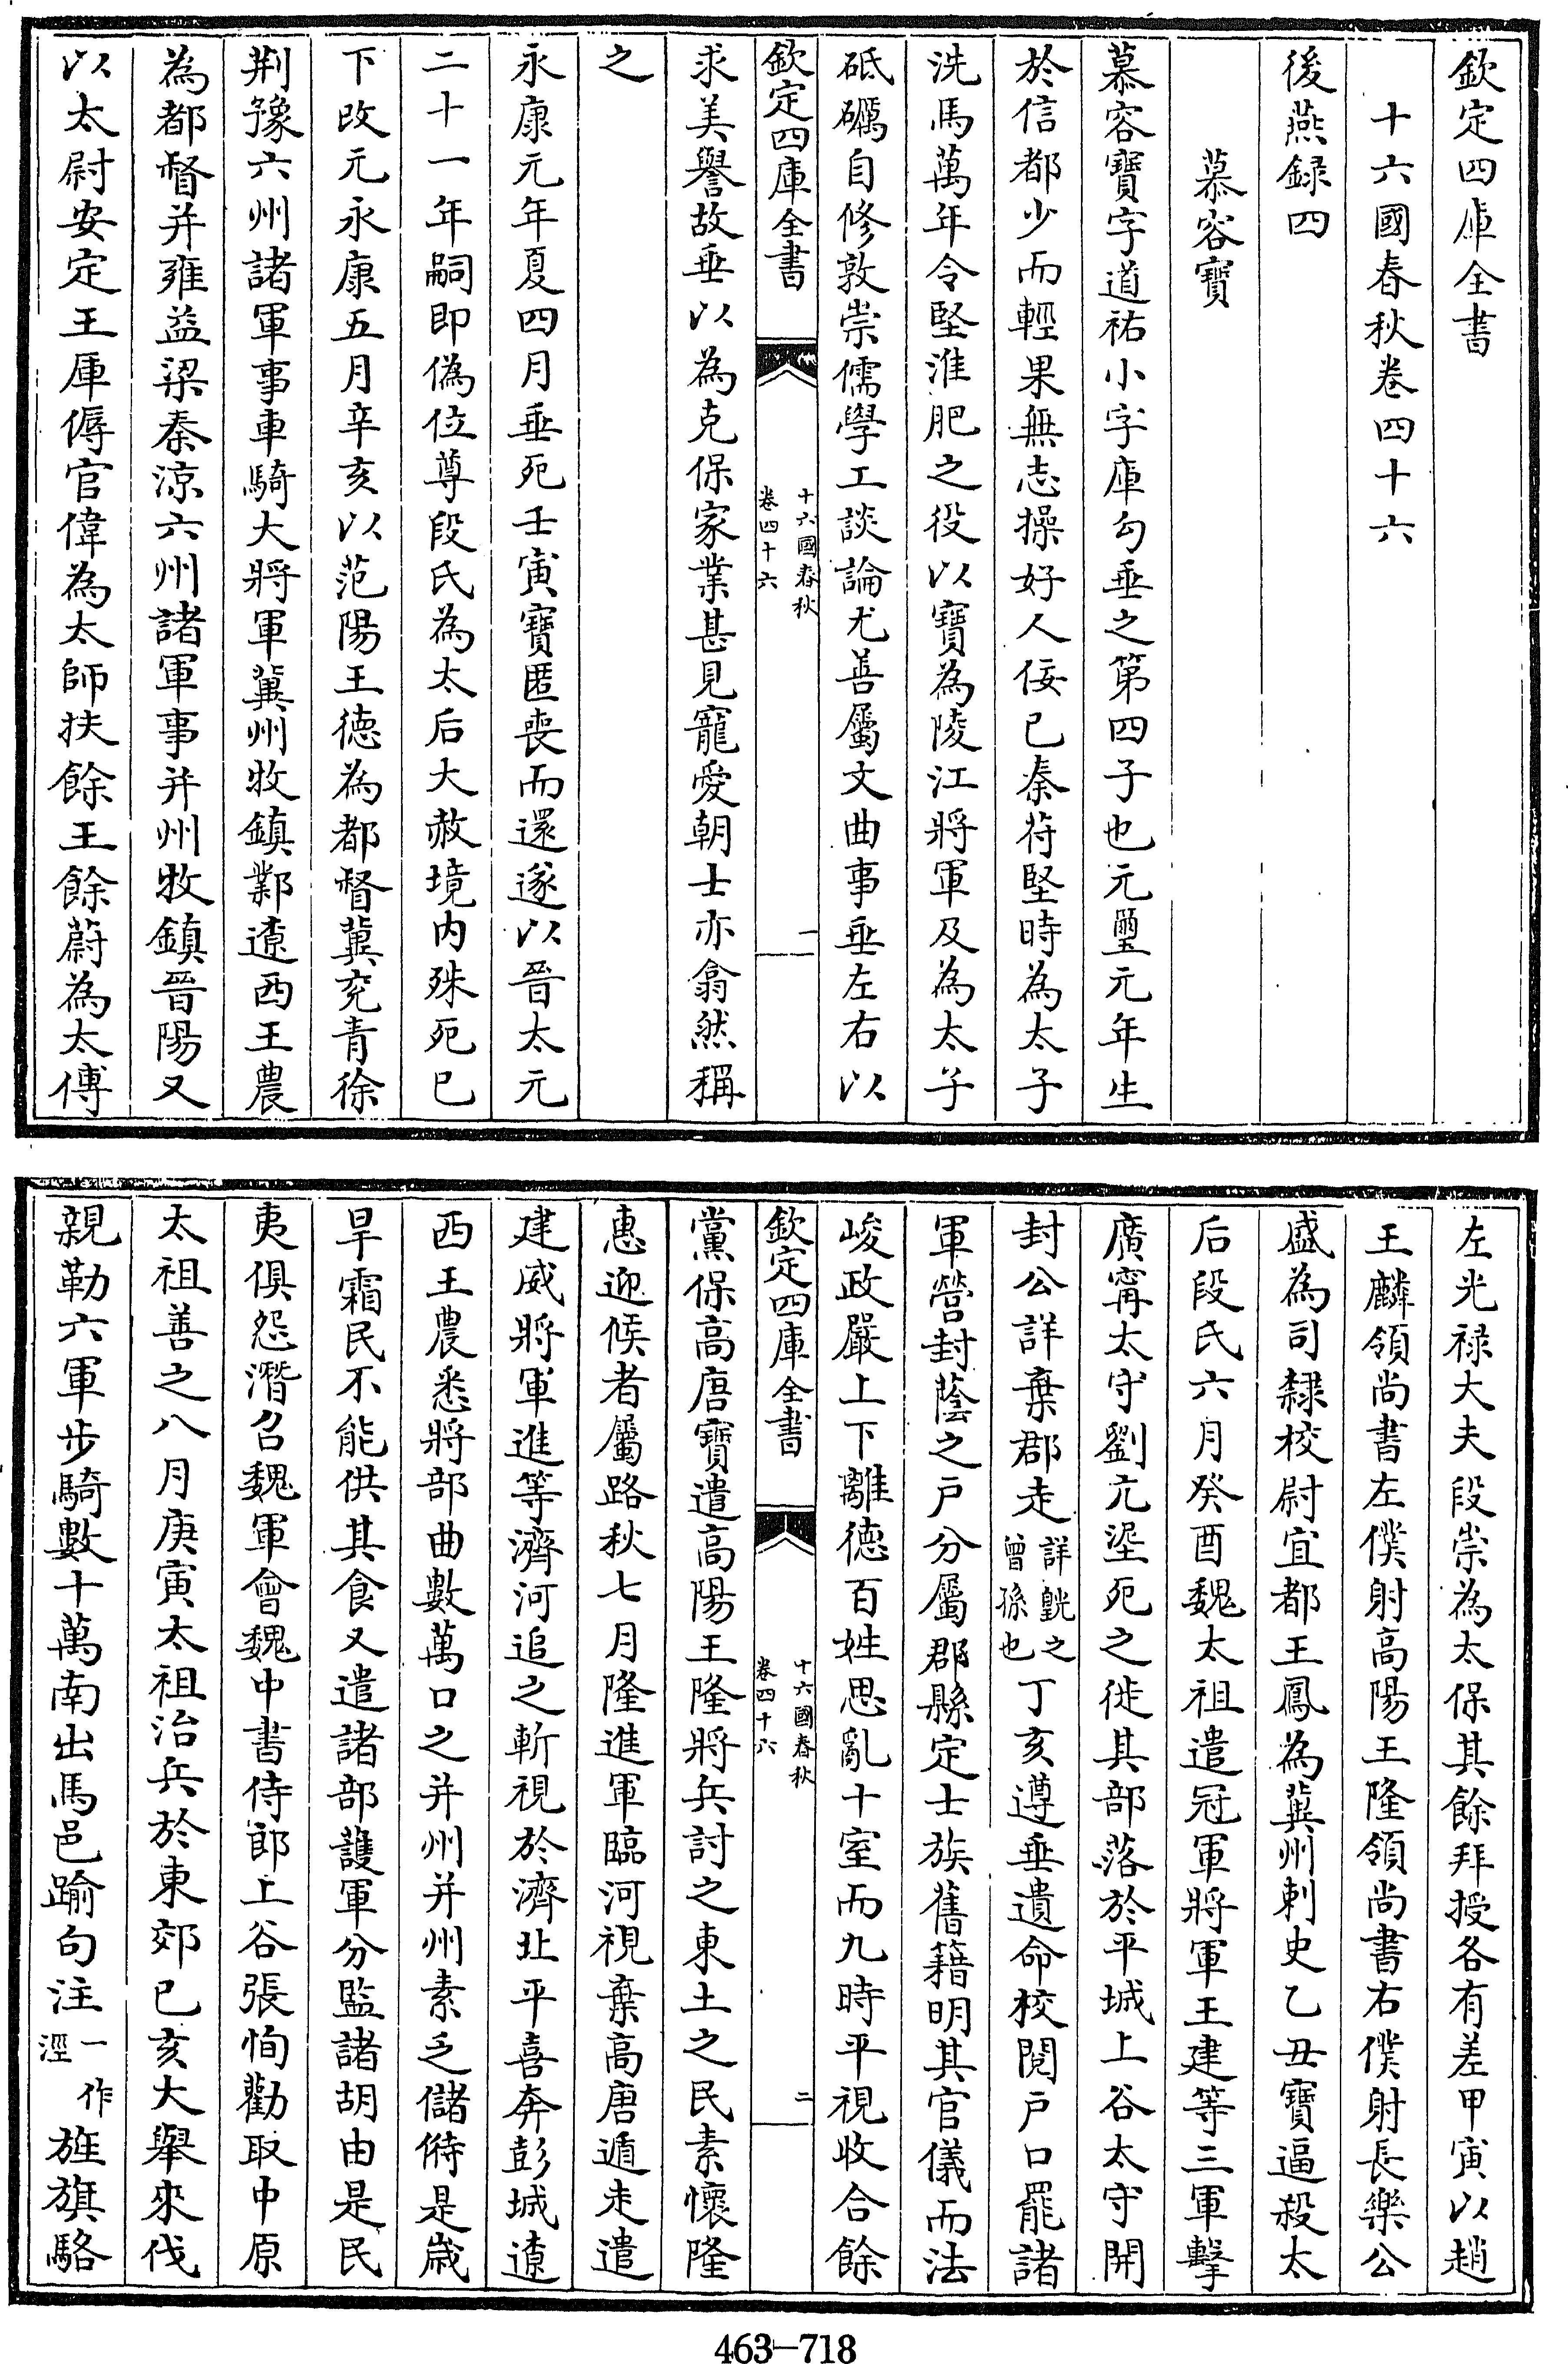 欽定四庫全書
十六國春秋卷四十六
後燕録四
慕容寶
慕容寶字道祐小字庫勾垂之第四子也元璽元年生
於信都少而輕果無志操好人佞已秦苻堅時為太子
洗馬萬年令堅淮肥之役以寶為陵江將軍及為太子
砥礪自修敦崇儒學工談論尤善屬文曲事垂左右以
欽定四庫全書
十六國春秋
卷四十六
一
求美譽故垂以為克保家業甚見寵愛朝士亦翕然稱
之
永康元年夏四月垂死壬寅寶匿喪而還遂以晉太元
二十一年嗣即偽位尊段氏為太后大赦境内殊死已
下改元永康五月辛亥以范陽王德為都督冀兖青徐
荆豫六州諸軍事車騎大將軍冀州牧鎮鄴遼西王農
為都督并雍益梁秦涼六州諸軍事并州牧鎮晉陽又
以太尉安定王庫傉官偉為太師扶餘王餘蔚為太傅
左光禄大夫段崇為太保其餘拜授各有差甲寅以趙
王麟領尚書左僕射高陽王隆領尚書右僕射長樂公
盛為司隸校尉宜都王鳳為冀州刺史乙丑寶逼殺太
后段氏六月癸酉魏太祖遣冠軍將軍王建等三軍擊
廣甯太守劉亢埿死之徙其部落於平城上谷太守開
封公詳棄郡走詳皝之曾孫也丁亥遵垂遺命校閲户口罷諸
軍營封蔭之户分屬郡縣定士族舊籍明其官儀而法
峻政嚴上下離德百姓思亂十室而九時平視收合餘
欽定四庫全書
十六國春秋
卷四十六
二
黨保高唐寶遣高陽王隆將兵討之東土之民素懷隆
惠迎候者屬路秋七月隆進軍臨河視棄高唐遁走遣
建威將軍進等濟河追之斬視於濟北平喜奔彭城遼
西王農悉將部曲數萬口之并州并州素乏儲偫是歲
旱霜民不能供其食又遣諸部護軍分監諸胡由是民
夷俱怨潛召魏軍會魏中書侍郎上谷張恂勸取中原
太祖善之八月庚寅太祖治兵於東郊已亥大舉來伐
親勒六軍步騎數十萬南出馬邑踰句注一作涇旌旗駱
463-718